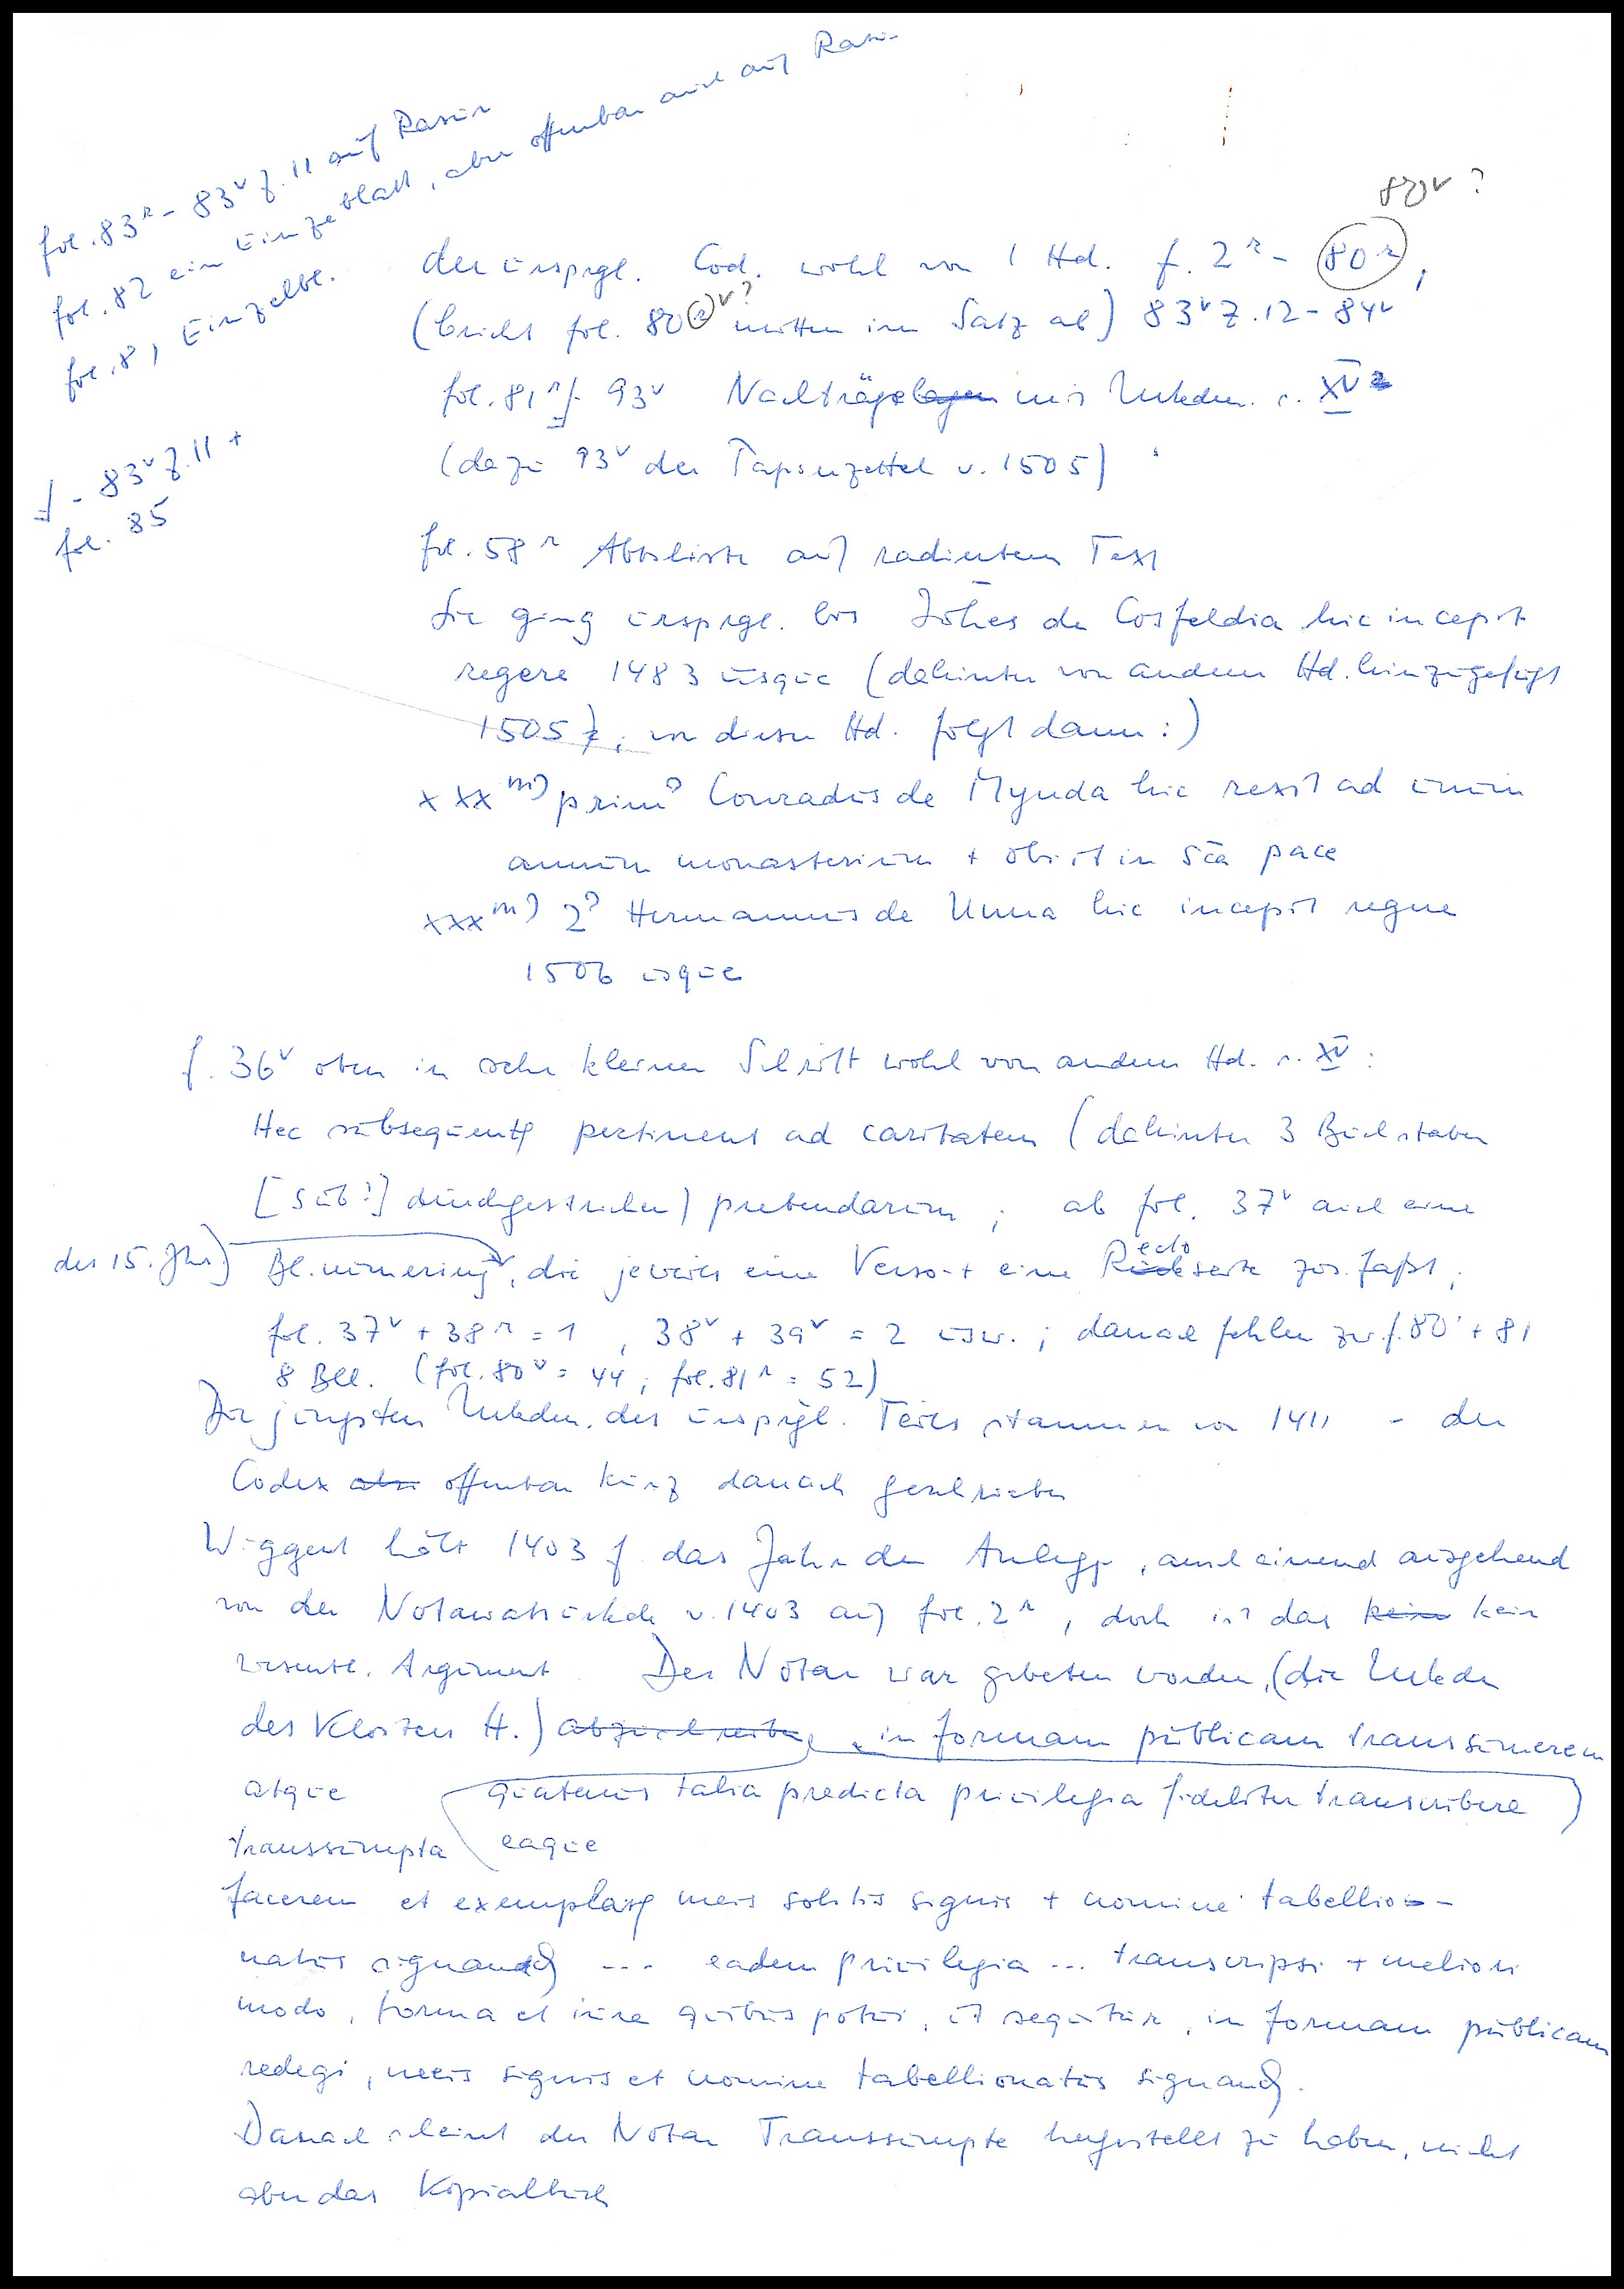 fol. 83r - 83v Z. 11 auf Rasur
fol. 82 ein Einzelblatt, aber offenbar auch auf Rasur
fol. 81 Einzelbl.
- 83v Z. 11 +
fol. 85
80v ?
der ursprgl. Cod. wohl von 1 Hd. f. 2r - 80r,
(bricht fol. 80r v? mitten im Satz ab) 83v Z. 12 - 84v
fol. 81r - 93v Nachträgelagen mit Urkden. s. XV 2
(dazu 93v der Papierzettel v. 1505)
fol. 58r Abtsliste auf radiertem Text
Sie ging ursprgl. bis Johes de Cosfeldia hic incepit
regere 1483 usque (dahinter von anderer Hd. hinzugefügt
1505; von dieser Hd. folgt dann:)
xxx m) prim9 Conradus de Mynda hic rexit ad unum
annum monasterium + obiit in sca pace
xxx m) 29 Hermannus de Unna hic incepit regere
1506 usque
f. 36v oben in sehr kleiner Schrift wohl von anderer Hd. s. XV:
Hec subsequent pertinent ad caritatem (dahinter 3 Buchstaben
[sub?] durchgestrichen) prebendarum; ab fol. 37v auch eine
des 15. Jhs.) Bl.numerierung, die jeweils eine Verso- + eine Rectoseite zus.faßt;
fol. 37v + 38r = 1, 38v + 39v = 2 usw.; danach fehlen zw. f. 80 + 81
8 Bll. (fol. 80v = 44; fol. 81r = 52)
Die jüngsten Urkden. des ursprgl. Teiles stammen von 1411 - der
Codex also offenbar kurz danach geschrieben
Wiggert hält 1403 f. das Jahr der Anlegg., anscheinend ausgehend
von der Notariatsurkde v. 1403 auf fol. 2r, doch ist das kein kein
wesentl. Argument. Der Notar war gebeten worden, (die Urkden
des Klosters H.) abzuschreiben, in formam publicam transsumerem
atque quatenus talia predicta privilegia fideliter transcribere
transsumpta eaque
facerem et exemplar meis solitis signis + nomine tabellio-
natus signand ... eadem privilegia ... transcripsi + meliori
modo, forma et iure quibus potui, ut sequitur, in formam publicam
redegi, meis signis et nomine tabellionatus signand.
Danach scheint der Notar Transsumpte hergestellt zu haben, nicht
aber das Kopialbuch